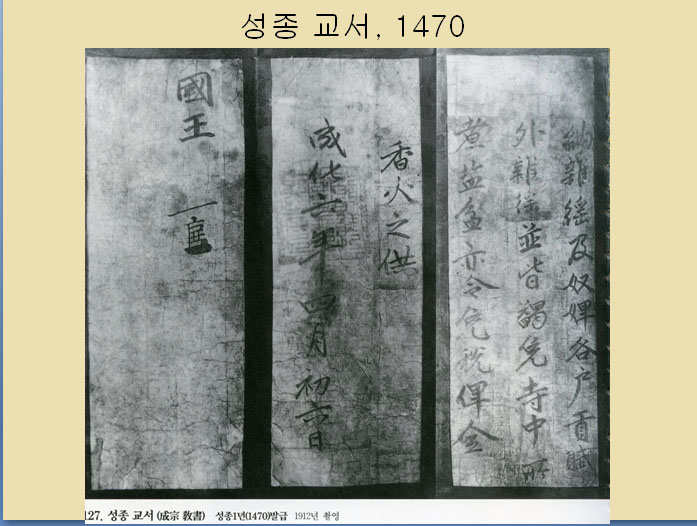 성종 교서, 1470
納雜徭及奴婢各户貢賦
外雜徭並皆蠲免寺中所
煮盐盆亦令免税俾全
香火之供
成化六年四月初六日
國王
127. 성종 교서 (成宗 敎書) 성종1년(1470)발급 1912년 촬영